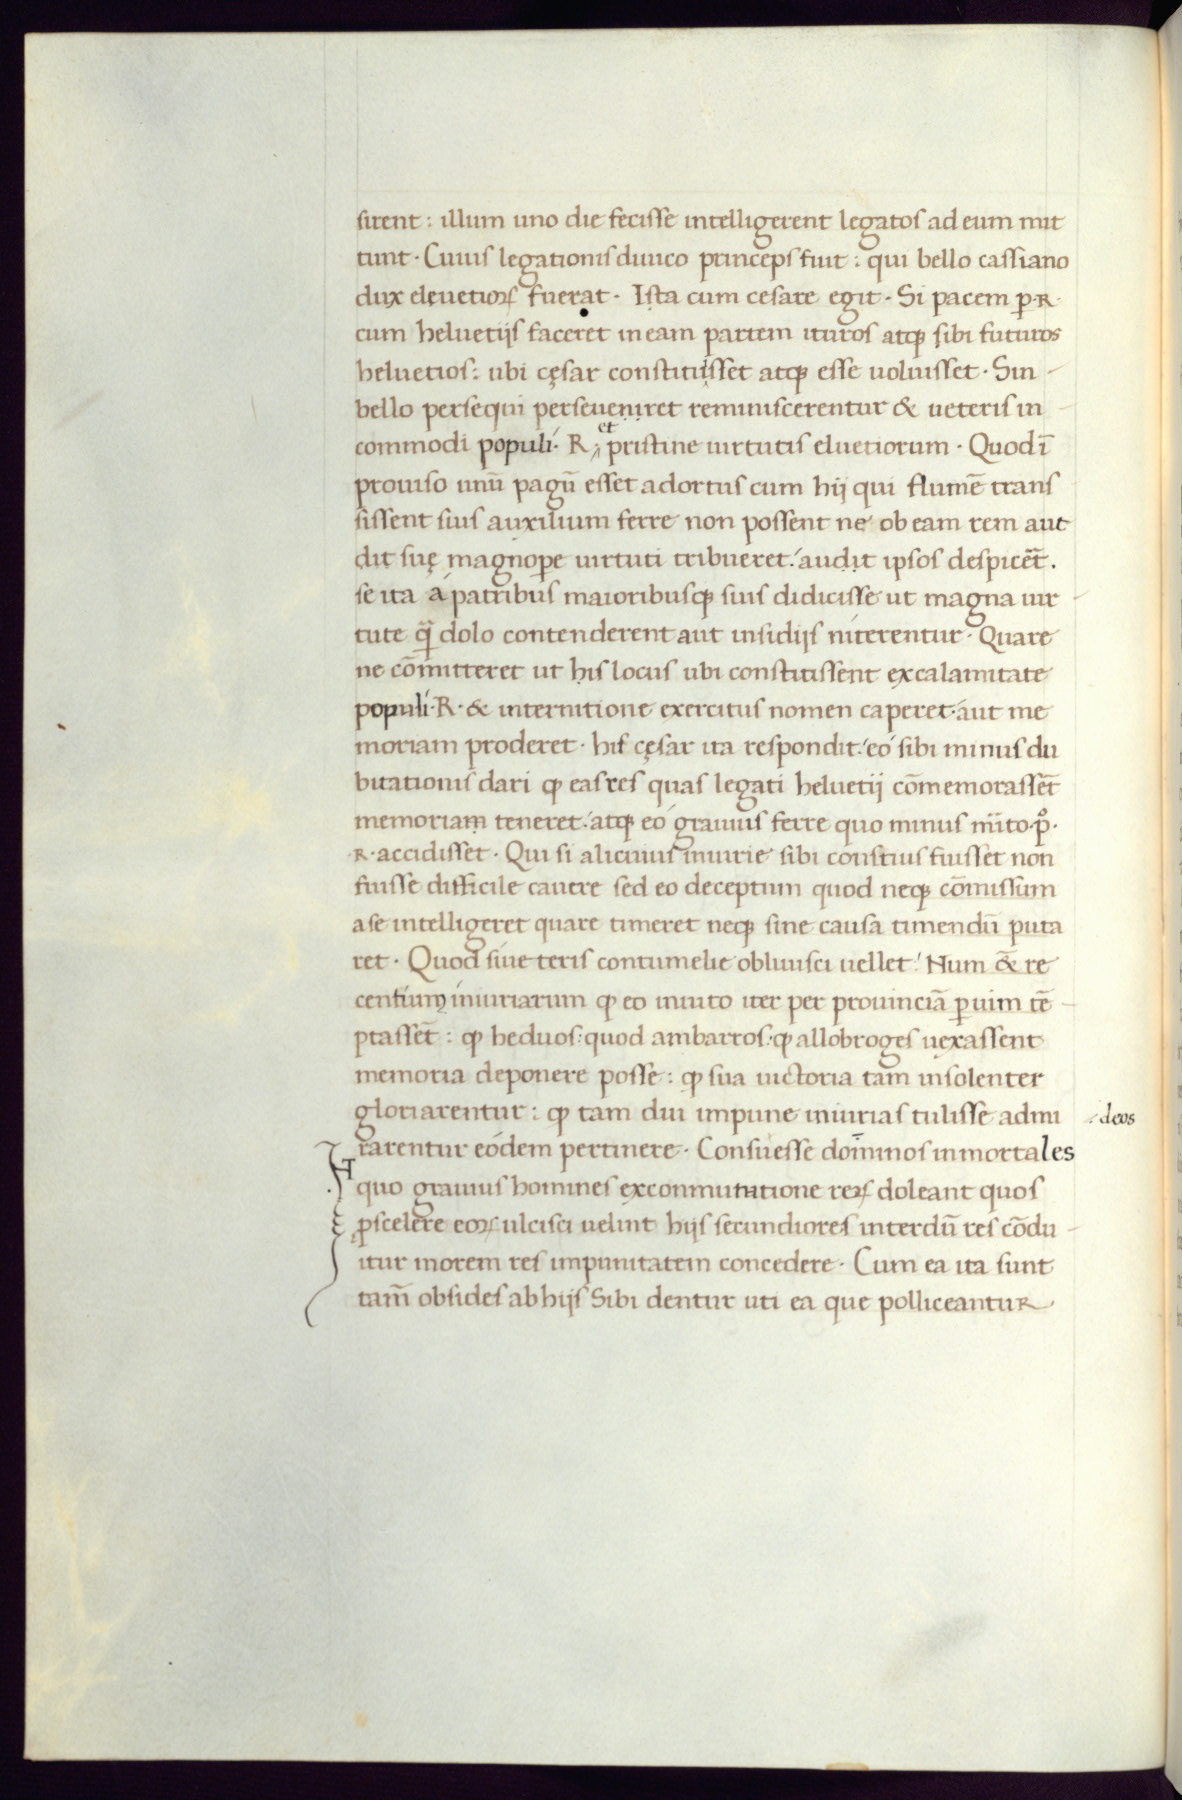 sirent : illum uno die fecisse intelligerent legatos ad eum mit
tunt · Cuius legationis diuico princeps fuit : qui bello cassiano
dux eleuetioꝝ fuerat · Ista cum cesare egit · Si pacem p·R·
cum heluetijs faceret in eam partem ituros atqꝫ sibi futuros
heluetios : ubi cęsar constituisset atqꝫ esse uoluisset · Sin -
bello persequi perseueniret reminiscerentur & ueteris in -
commodi populi· R et pristine uirtutis eluetiorum · Quod ī
prouiso unū pagū esset adortus cum hij qui flumē trans
sissent suis auxilium ferre non possent ne ob eam rem aut
dit suę magnopere uirtuti tribueret : audit ipsos despicēt .
se ita á patribus maioribusqꝫ suis didicisse ut magna uir -
tute q̄ꝫ dolo contenderent aut insidijs niterentur · Quare
ne cōmitteret ut his locus ubi constitissent ex calamitate
populi·R· & internitione exercitus nomen caperet· aut me
moriam proderet · his cęsar ita respondit : eó sibi minus du
bitationis dari ꝙ eas res quas legati heluetij cōmemorassēt
memoriam teneret : atqꝫ eó grauius ferre quo minus m̄ito·p̊·
·R· accidisset · Qui si alicuius iniurie sibi constius fuisset non
fuisse difficile cauere sed eo deceptum quod neqꝫ cōmissum
a se intelligeret quare timeret neqꝫ sine causa timendū puta
ret · Quod siue teris contumelie obliuisci uellet : Num & re
centium iniuriarum ꝙ eo inuito iter per prouinciā ꝑ uim tē -
ptassēt : ꝙ heduos : quod ambarros : ꝙ allobroges uexassent
memoria deponere posse : ꝙ sua uictoria tam insolenter
gloriarentur : ꝙ tam diu impune iniurias tulisse admi
deos
rarentur eódem pertinere · Consuesse dominos inmortales
quo grauius homines ex conmutatione rerꝝ doleant quos
ꝓ scelere eoꝝ ulcisci uelint hijs secundiores interdū res cōdu -
itur morem res impunitatem concedere · Cum ea ita sunt
tam̄ obsides ab hijs Sibi dentur uti ea que polliceantuR